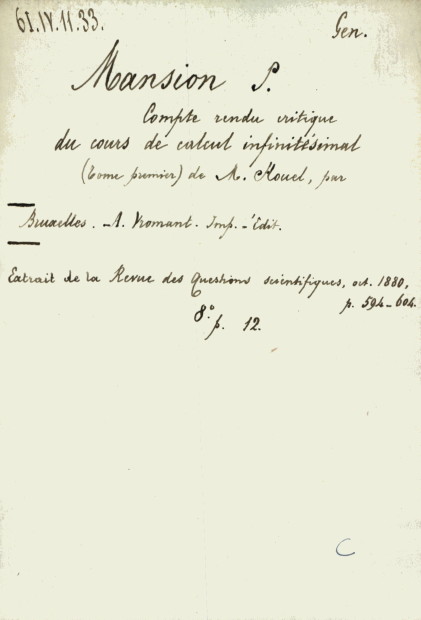 61.IV.11.33.
Gen.
Mansion P.
Compte rendu critique
du cours de calcul infinitésimal
(tome premier) de M. Houel, par
Bruxelles. - A. Vromant. Imp. - Édit.
Extrait de la Revue des Questions scientifiques, oct. 1880,
p. 594-604.
8° p. 12.
C